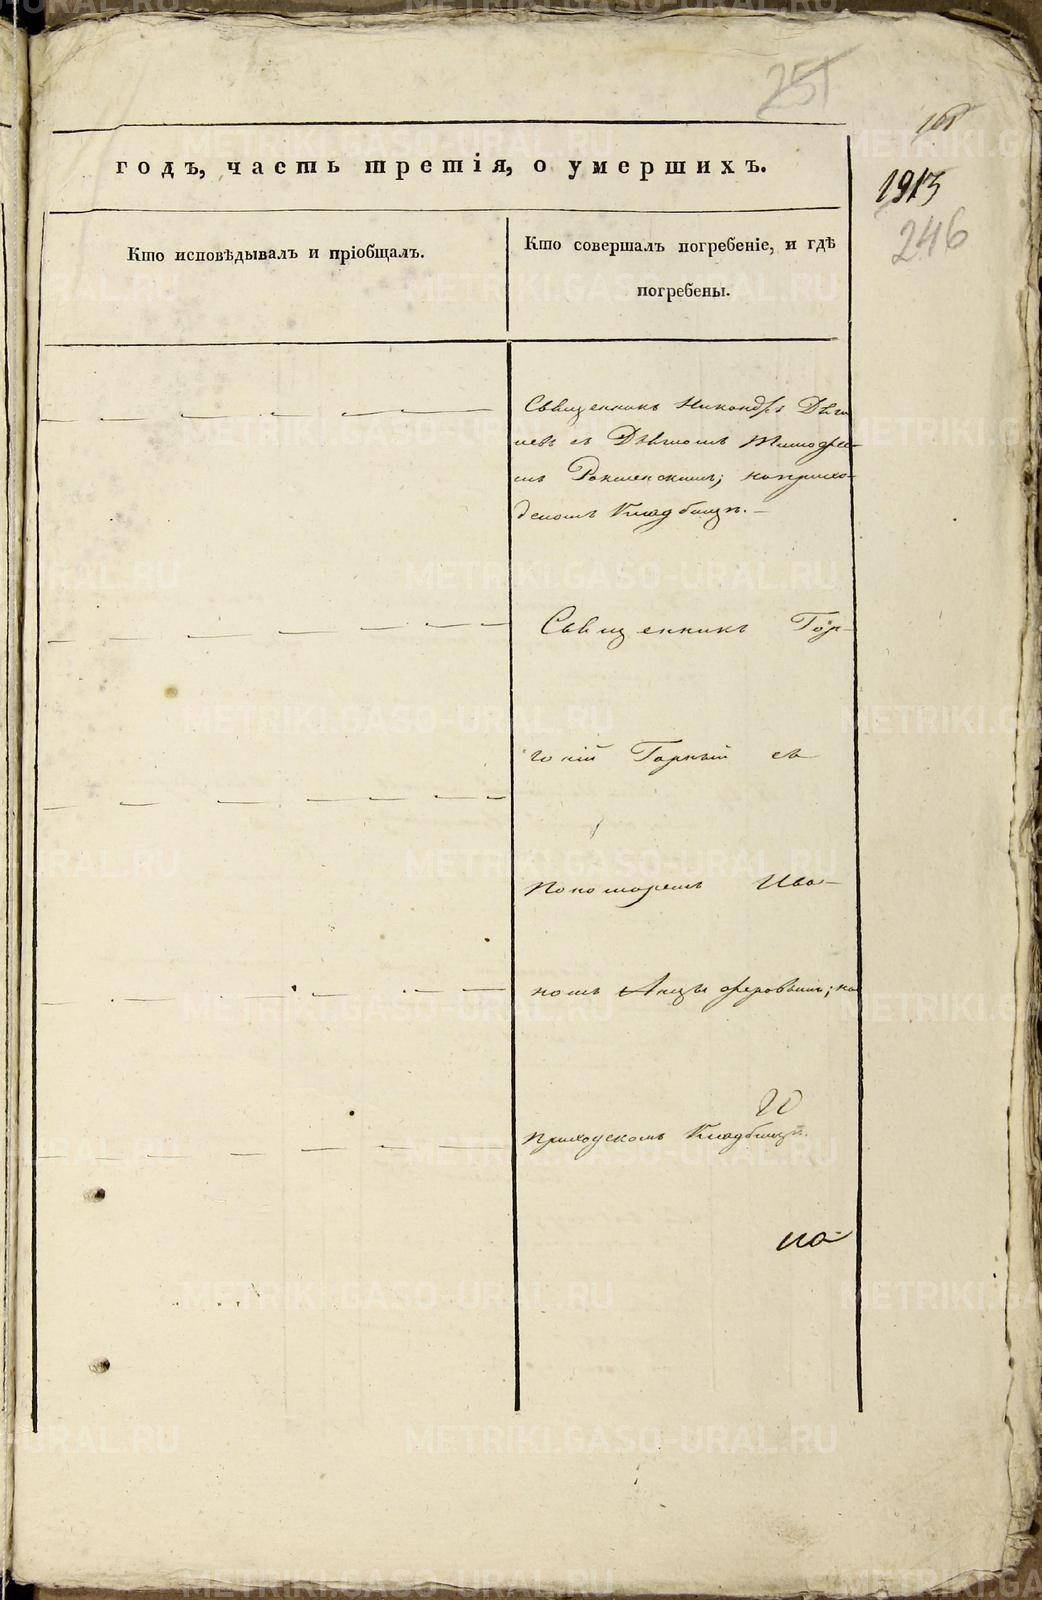 251
161
годъ, часть третія, о умершихъ.
1913
246
Кто исповѣдывалъ и пріобщалъ.
Кто совершалъ погребеніе, и гдѣ
погребены.
Священникъ Никандръ
съ Тимофее-
мъ наприхо-
дскомъ Кладбищѣ.
Священникъ Геор-
гій Горный съ
Пономаремъ Ива-
номъ Анцыферовымъ; на
Приходскомъ Кладбищѣ.
на-
METRIKI.GASO-URAL.RU